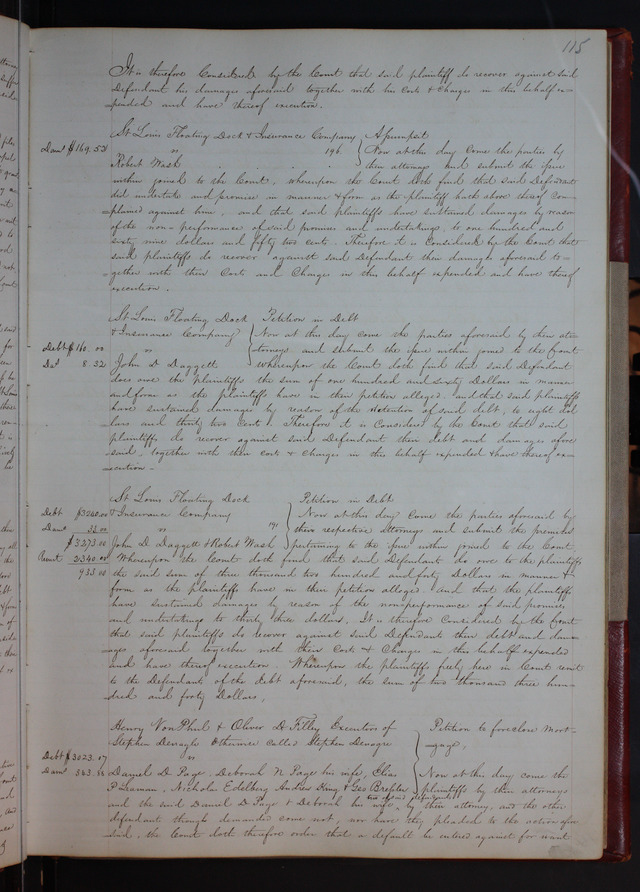 115
It is therefore Considered by the Court that said plaintiff do recover against said
Defendant his damages aforesaid together with his Costs & Charges in this behalf ex-
pended and have thereof execution.
St Louis Floating Dock & Insurance Company } Assumpsit
Dam $169.52 " 196. Now at this day Come the parties by
Robert Wash their attorneys and submit the issue
within joined to the Court, whereupon the Court doth find that said Defendant
did undertake and promise in manner & form as the plaintiff hath above thereof Com-
plained against him, and that said plaintiffs have sustained damages by reason
of the non-performance of said promises and undertakings, to one hundred and
sixty nine dollars and fifty two cents. Therefore it is Considered by the Court that
said plaintiffs do recover against said Defendant their damages aforesaid to-
gether with their Costs and Charges in this behalf expended and have thereof
execution.
St Louis Floating Dock Petition in Debt
& Insurance Company } Now at this day come the parties aforesaid by their at-
Debt $160.00 " torneys and submit the issue within joined to the Court
Da 8.32 John D Daggett whereupon the Court doth find that said Defendant
does owe the Plaintiffs the sum of one hundred and sixty Dollars in manner
and form as the plaintiffs have in their petition alleged, and that said plaintiffs
have sustained damages by reason of the detention of said debt, to eight dol
lars and thirty two Cents. Therefore it is Considered by the Court that said
plaintiffs do recover against said Defendant their debt and damages afore
said, together with their costs & charges in this behalf expended & have thereof ex-
ecution -
St Louis Floating Dock Petition in Debt
Debt $3240.00 & Insurance Company } Now at this day Come the parties aforesaid by
Dam 33.00 " 191 their respective attorneys and submit the premises
$3273.00 John D. Daggett & Robert Wash pertaining to the issue within joined to the Court
Remit 2340.00 Whereupon the Court doth find that said Defendants do owe to the plaintiffs
933.00 the said sum of three thousand two hundred and forty Dollars in manner &
form as the plaintiffs have in their petition alleged and that the plaintiffs
have sustained damages by reason of the nonperformance of said promises
and undertakings to thirty three dollars. It is therefore Considered by the Court
that said plaintiffs do recover against said Defendants their debt and dam-
ages aforesaid together with their Costs & Charges in this behalf expended
and have thereof execution. Whereupon the plaintiffs freely here in Court remit
to the Defendants of the Debt aforesaid, the sum of two thousand three hun-
dred and forty Dollars.
Henry Von Phul & Oliver D Filley Executors of Petition to foreclose Mort-
Stephen otherwise Called Stephen } gage.
Debt $3023.07 "
Dam 543.65 Daniel D Page, Deborah N Page his wife, Elias Now at this day come the
Nichola Edelberg Andrew King & Geo plaintiffs by their attorneys
two of said defendants
and the said Daniel D Page & Deborah his wife, by their attorney, and the other
defendants though demanded come not, nor have they pleaded to the action afore
said, the Court doth therefore order that a default be entered against for want